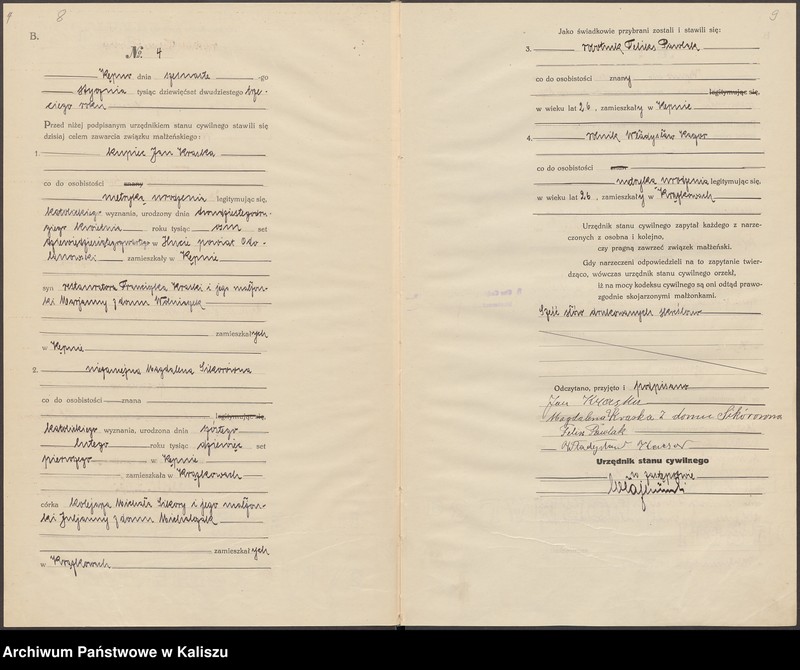 8
B.
№ 4
Kępno dnia -go
stycznia tysiąc dziewięćset dwudziestego trze-
ciego roku
Przed niżej podpisanym urzędnikiem stanu cywilnego stawili się
dzisiaj celem zawarcia związku małżeńskiego:
1. kupiec Jan Kraska
co do osobistości znany
metryką urodzenia legitymując się,
katolickiego wyznania, urodzony dnia
kwietnia roku tysiąc osm set
w powiat
zamieszkały w Kępnie
syn restauratora Franciszka Kraski i jego małżon-
ki Marjanny z domu
zamieszkałych
w Kępnie
2. niezamężna Magdalena Sikorówna
co do osobistości znana
legitymując się,
katolickiego wyznania, urodzona dnia
lutego roku tysiąc dziewięć set
pierwszego w Kępnie
zamieszkała w Krążkowach
córka kolejarza Michała Sikory i jego małżon-
ki Juljanny z domu
zamieszkałych
w Krążkowach
9
Jako świadkowie przybrani zostali i stawili się:
3. rolnik Feliks Pawlak
co do osobistości znany
legitymując się,
w wieku lat 26, zamieszkały w Kępnie
4. rolnik Władysław
co do osobistości znany
metryką urodzenia legitymując się,
w wieku lat 26, zamieszkały w Krążkowach
Urzędnik stanu cywilnego zapytał każdego z narze-
czonych z osobna i kolejno,
czy pragną zawrzeć związek małżeński.
Gdy narzeczeni odpowiedzieli na to zapytanie twier-
dząco, wówczas urzędnik stanu cywilnego orzekł,
iż na mocy kodeksu cywilnego są oni odtąd prawo-
zgodnie skojarzonymi małżonkami.
słów drukowanych skreślono
Odczytano, przyjęto i podpisano
Jan Kraska
Magdalena Kraska z domu Sikórówna
Felix Pawlak
Władysław
Urzędnik stanu cywilnego
w zastępstwie
Archiwum Państwowe w Kaliszu